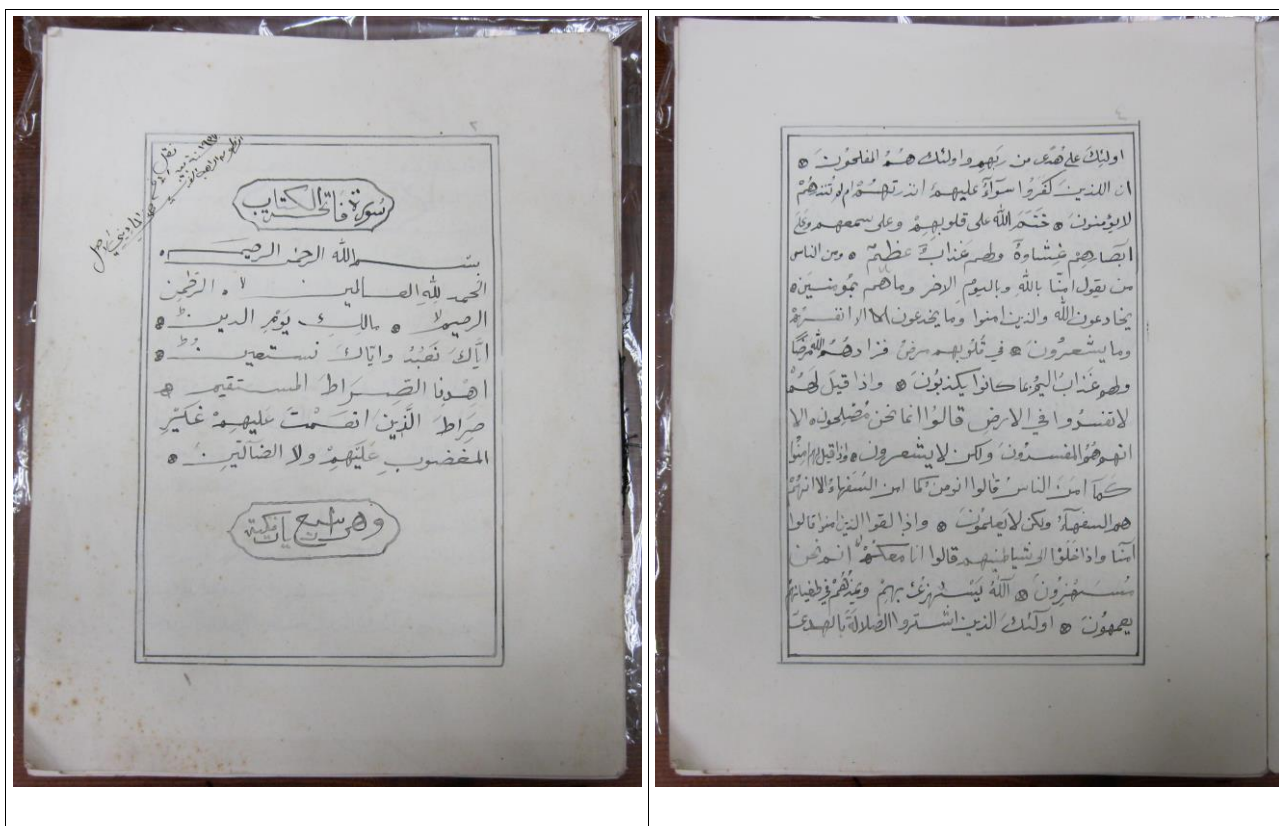 سورة فاتحة الكتاب
بسم الله الرحمن الرحيم
الحمد لله العالمين لا الرحمن
الرحيم لا مالك يَوْمِ الدين ط
اياكَ نَعْبُدُ واياكَ نستعين ط
اهدنا الصراطَ المستقيم
صِرَاطَ الَّذِين انعمْتَ عَلَيهِمْ غَيْرِ
المغضوبِ عَلَيْهِمْ ولا الضآلّين
وهي سبع آيات مكية
اولئكَ على هُدًى من ربهم واولئك هُمُ المفلحُونَ
ان اللذين كَفَرُوا سَوآءٌ عليهمْ انذرتهُمْ ام لم تُنذهمْ
لا يؤمنونَ خَتَمَ اللهُ على قلوبهِمْ وعلى سمعهم وعَلَى
ابصارهِمْ غِشاوةٌ ولهم عَذابٌ عظيمٌ ومن الناس
من يقول امنّا باللهِ وباليومِ الاخر وما هم بمُومنينَ
يخادعون الله والذين امنوا وما يخدعون الا انفسهمْ
وما يشعرُونَ في قُلُوبهم مرضٌ فزادهُمُ اللهُ مرضًا
ولهم عَذابٌ اليمٌ بما كانوا يكذبُونَ واذا قيلَ لهُمْ
لا تفسدُوا في الارض قالُوا انما نحن مُصْلِحونَ الا
انهم هُمُ المفسدُونَ ولكن لا يشعرون واذا قيل لهم امِنُوا
كَمَآ امنَ الناسُ قالوا انومن كما امن السُّفَهاءُ الا انهُمْ
هم السفهآءُ ولكن لا يَعلمُونَ واذا لقوا الذين امنوا قالوا
آمنّا واذا خَلَوْا الى شياطينهم قالوا انا معكُمْ انما نحن
مُسْتهزِؤنَ اَللهُ يَسْتهزئُ بهِمْ ويمُدُّهُمْ في طغيانهمْ
يعمهُونَ اُولَئكَ الذين اشتروا الضلالَةَ بالهدى